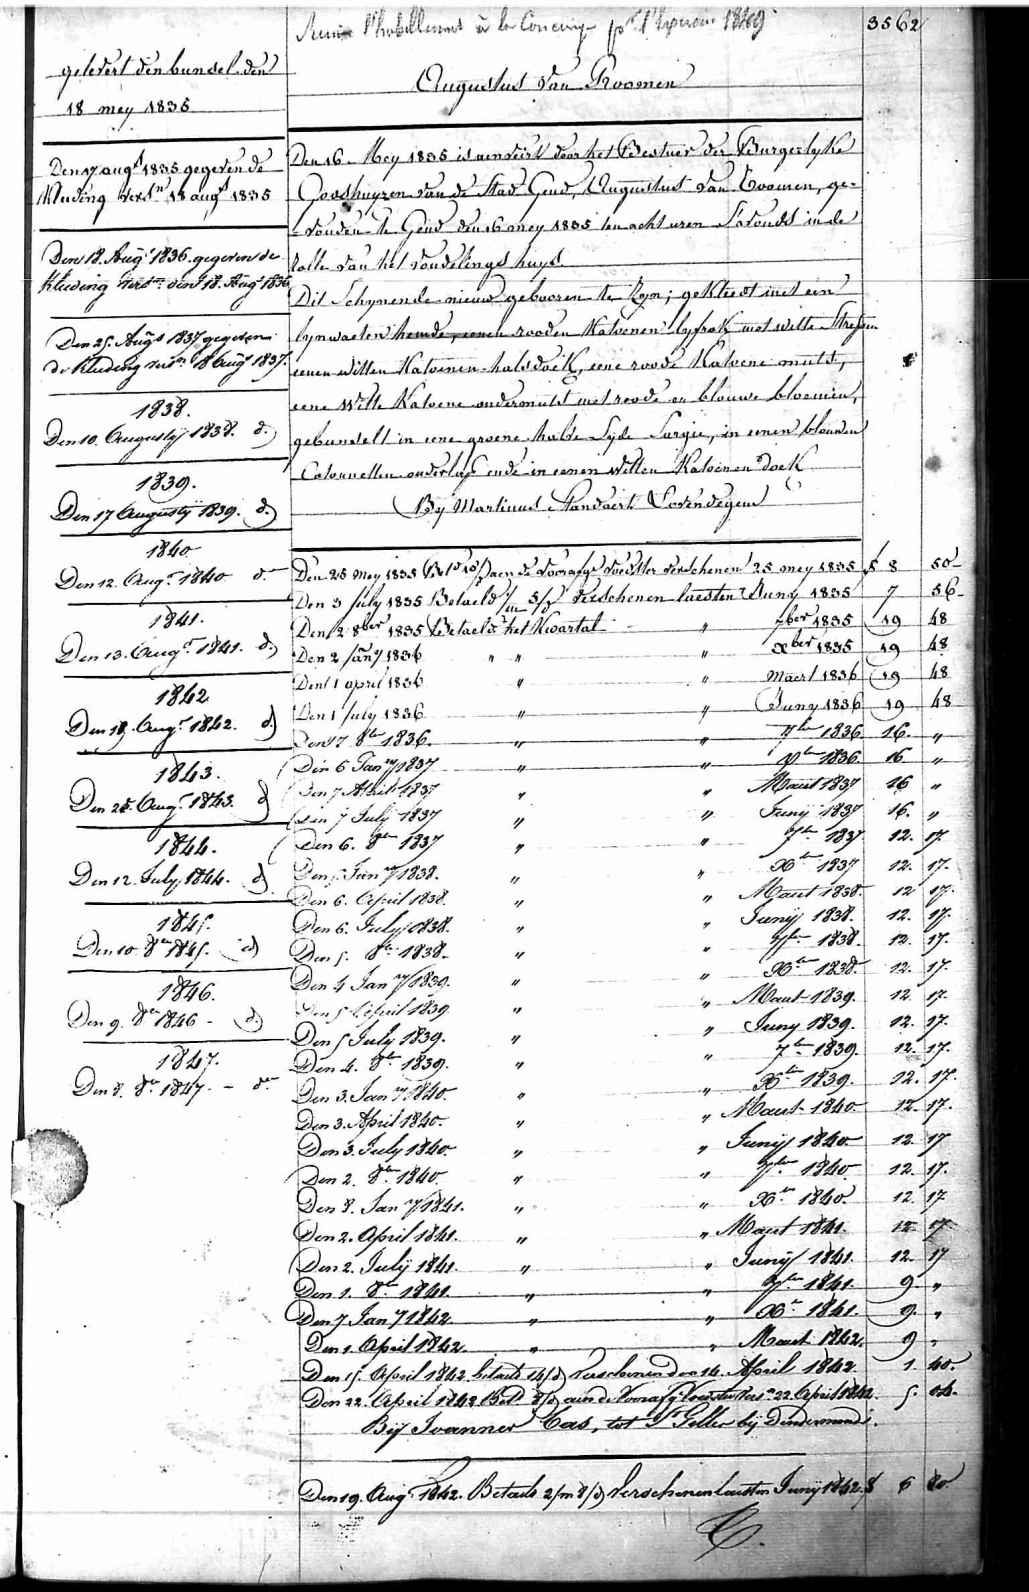 3562
gelevert den bundel den
18 mey 1835
Den 17 augt 1835 gegeven de
kleeding versn 18 augt 1835
Den 18. Augt 1836. gegeven de
kleeding versn den 18. Augt 1836
Den 25. Augs 1837 gegeven
de kleeding versn 18 Augt 1837.
1838.
Den 10. Augustij 1838. d.)
1839.
Den 17 Augustij 1839. d.)
1840
Den 12. Augt 1840 d.
1841.
Den 13. Augt 1841. d.)
1842
Den 19. Augt 1842. d)
1843.
Den 25. Augt 1843. d)
1844.
Den 12. July 1844. d)
1845.
Den 10. 8er 1845. d)
1846.
Den 9. 8er 1846 - d.)
1847.
Den 8. 8er 1847. - d
1849
Augustus Van Roomen
Den 16 Mey 1835 is aenveirt door het Bestuer der Burgerlyke
Godshuyzen van de Stad Gend, Augustus Van Roomen, ge-
vonden te Gend den 16 mey 1835 ten acht uren S'avonds in de
rolle van het vondelings huys
Dit Schynende nieuw gebooren te Zyn; gekleedt met een
lynwaeten hemde, eenen rooden Katoenen lyfrok met witte Strepen
eenen witten Katoenen halsdoek, eene roode Katoene muts,
eene Witte Katoene ondermuts met roode en blauwe bloemen,
gebundelt in eene groene halve Syde Sargie, in eenen blauwen
onderlag ende in eenen witten Katoenen doek
By Martinus Standaert Lovendegem
Den 25 Mey 1835 aen de Voorafge Voedster verschenen 25 mey 1835 f 8 50
Den 3 July 1835 Betaeld 1/m 5/d verschenen laesten Juny 1835 7 56
Den 2 8ber 1835 Betaeld het Kwartal " 7ber 1835 19 48
Den 2 Jany 1836 " " " xber 1835 19 48
Den 1 april 1836 " " Maert 1836 19 48
Den 1 July 1836 " " Juny 1836 19 48
Den 7 8er 1836. " " 7er 1836 16. "
Den 6 Jany 1837 " " Xer 1836 16 "
Den 7 April 1837 " " Maert 1837 16 "
Den 7 July 1837 " " Junij 1837 16. "
Den 6. 8er 1837 " " 7er 1837 12. 17.
Den 5 Jany 1838. " " Xer 1837 12. 17.
Den 6. April 1838. " " Maert 1838. 12 17.
Den 6. July 1838. " " Junij 1838. 12. 17.
Den 5. 8er 1838. " " 7er 1838. 12. 17.
Den 4 Jany 1839. " " Xer 1838. 12. 17.
Den 5 April 1839 " " Maert 1839. 12 17.
Den 5 July 1839. " " Juny 1839. 12. 17.
Den 4. 8er 1839. " " 7er 1839. 12. 17.
Den 3. Jany 1840. " " Xer 1839. 12. 17.
Den 3. April 1840. " " Maert 1840. 12. 17.
Den 3. July 1840. " " Junij 1840 12. 17
Den 2. 8er 1840. " " 7er 1840. 12. 17.
Den 8. Jany 1841. " " Xer 1840. 12. 17
Den 2. April 1841. " " Maert 1841. 12 17
Den 2. July 1841. " " Junij 1841. 12. 17
Den 1. 8er 1841. " " 7er 1841. 9 "
Den 7 Jany 1842. " " Xer 1841. 9. "
Den 1. April 1842. " " Maert 1842. 9 "
Den 15. April 1842 betaelt 14/d Verschenen den 14. April 1842. 1. 40.
Den 22. April 1842 Bet 8/d aen de Voorafg Voedster Versn 22. April 1842. 5. 04.
Bij Joannes Cas, tot St Gilles bij Dendermonde.
Den 19. Augt 1842. Betaelt 2/m 8/d Verschenen laesten Junij 1842. f 6 80